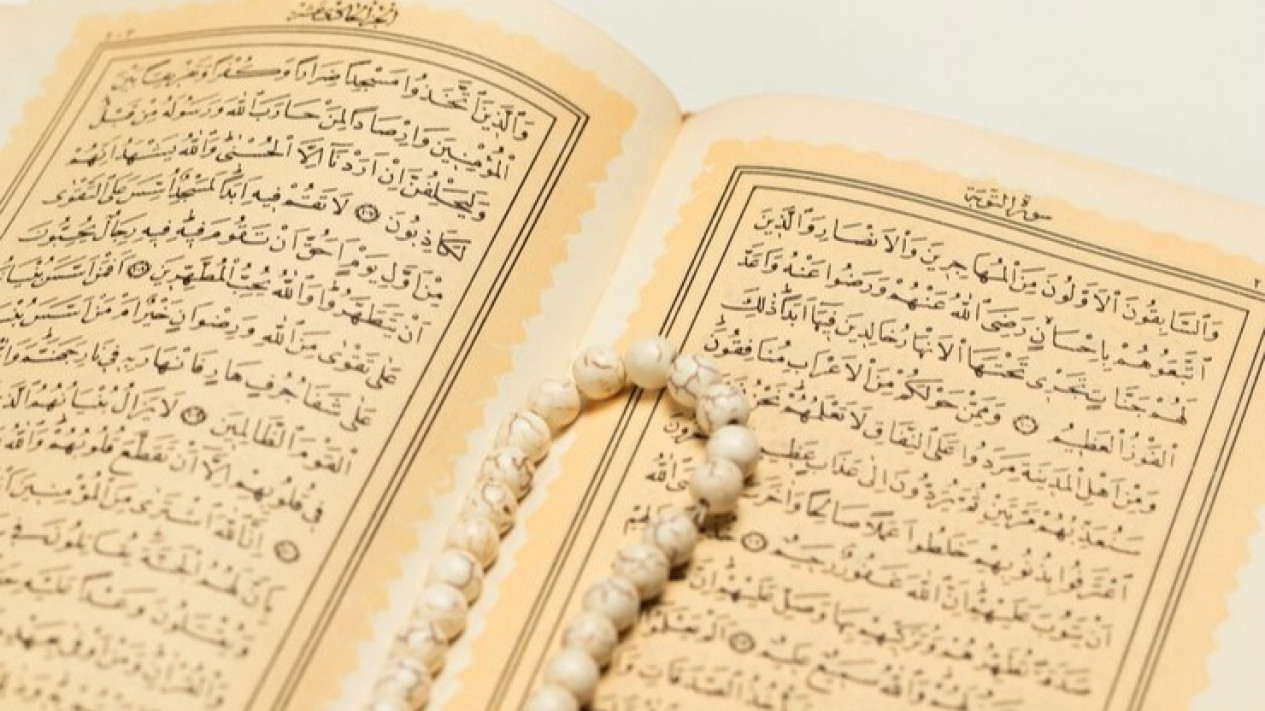 سورة التوبة
وَالسَّابِقُونَ الْاَوَّلُونَ مِنَ الْمُهَاجِرِينَ وَالْاَنْصَارِ وَالَّذِينَ
اتَّبَعُوهُمْ بِاِحْسَانٍ رَضِيَ اللّٰهُ عَنْهُمْ وَرَضُوا عَنْهُ وَاَعَدَّ
لَهُمْ جَنَّاتٍ تَجْرِي تَحْتَهَا الْاَنْهَارُ خَالِدِينَ فِيهَا اَبَدًا ذٰلِكَ
الْفَوْزُ الْعَظِيمُ وَمِمَّنْ حَوْلَكُمْ مِنَ الْاَعْرَابِ مُنَافِقُونَ
وَمِنْ اَهْلِ الْمَدِينَةِ مَرَدُوا عَلَى النِّفَاقِ لَا تَعْلَمُهُمْ نَحْنُ
سَنُعَذِّبُهُمْ مَرَّتَيْنِ ثُمَّ يُرَدُّونَ اِلٰى عَذَابٍ عَظِيمٍ
اعْتَرَفُوا بِذُنُوبِهِمْ خَلَطُوا عَمَلًا صَالِحًا وَاٰخَرَ اللّٰهُ
اَنْ يَتُوبَ عَلَيْهِمْ اِنَّ اللّٰهَ غَفُورٌ رَحِيمٌ
صَدَقَةً تُطَهِّرُهُمْ وَتُزَكِّيهِمْ بِهَا وَصَلِّ عَلَيْهِمْ اِنَّ
لَهُمْ وَاللّٰهُ سَمِيعٌ عَلِيمٌ اَلَمْ يَعْلَمُوا
الصَّدَقَاتِ
وَالَّذِينَ اتَّخَذُوا مَسْجِدًا ضِرَارًا وَكُفْرًا وَتَفْرِيقًا بَيْنَ
الْمُؤْمِنِينَ وَاِرْصَادًا لِمَنْ حَارَبَ اللّٰهَ وَرَسُولَهُ مِنْ قَبْلُ
وَلَيَحْلِفُنَّ اِنْ اَرَدْنَا اِلَّا الْحُسْنٰى وَاللّٰهُ يَشْهَدُ اِنَّهُمْ
لَكَاذِبُونَ ١٠٧ لَا تَقُمْ فِيهِ اَبَدًا لَمَسْجِدٌ اُسِّسَ عَلَى التَّقْوٰى
مِنْ اَوَّلِ يَوْمٍ اَحَقُّ اَنْ تَقُومَ فِيهِ فِيهِ رِجَالٌ يُحِبُّونَ
اَنْ يَتَطَهَّرُوا وَاللّٰهُ يُحِبُّ الْمُطَّهِّرِينَ ١٠٨ اَفَمَنْ اَسَّسَ بُنْيَانَهُ
عَلٰى تَقْوٰى مِنَ اللّٰهِ وَرِضْوَانٍ خَيْرٌ اَمْ مَنْ اَسَّسَ بُنْيَانَهُ
عَلٰى شَفَا جُرُفٍ هَارٍ فَانْهَارَ بِهِ فِي نَارِ جَهَنَّمَ وَاللّٰهُ
الْقَوْمَ الظَّالِمِينَ ١٠٩ لَا يَزَالُ بُنْيَانُهُمُ الَّذِي
فِي قُلُوبِهِمْ اِلَّا اَنْ تَقَطَّعَ قُلُوبُهُمْ وَاللّٰهُ
اِنَّ اللّٰهَ اشْتَرٰى مِنَ الْمُؤْمِنِينَ
بِاَنَّ لَهُمُ الْجَنَّةَ يُقَاتِلُونَ فِي
وَيُقْتَلُونَ وَعْدًا عَلَيْهِ
وَالْقُرْاٰنِ وَمَنْ اَوْفٰى بِعَهْدِهِ